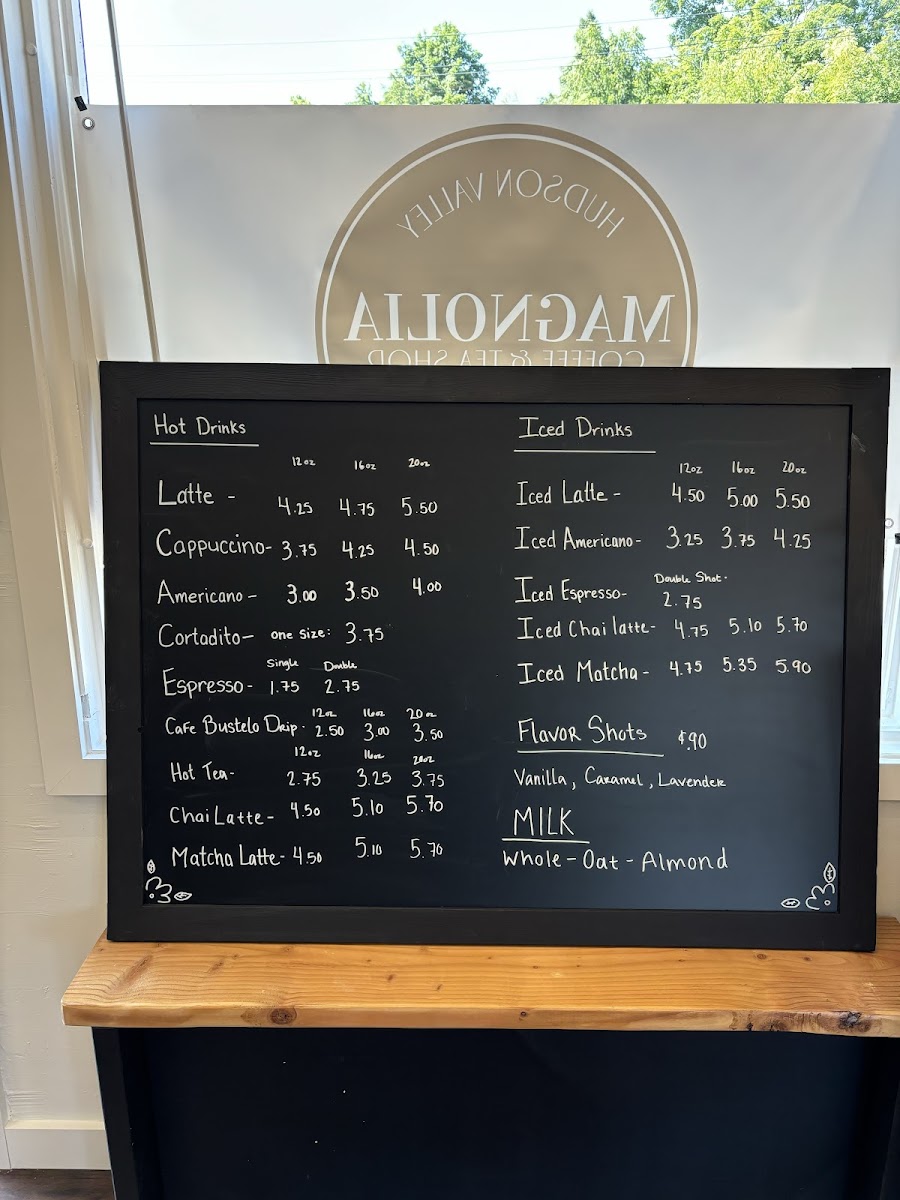 HUDSON VALLEY
MAGNOLIA
COFFEE & TEA SHOP
Hot Drinks
12oz 16oz 20oz
Latte - 4.25 4.75 5.50
Cappuccino- 3.75 4.25 4.50
Americano - 3.00 3.50 4.00
Cortadito- one size: 3.75
Single Double
Espresso- 1.75 2.75
12oz 16oz 20oz
Cafe Bustelo Drip- 2.50 3.00 3.50
12oz 16oz 20oz
Hot Tea- 2.75 3.25 3.75
Chai Latte- 4.50 5.10 5.70
Matcha Latte- 4.50 5.10 5.70
Iced Drinks
12oz 16oz 20oz
Iced Latte - 4.50 5.00 5.50
Iced Americano- 3.25 3.75 4.25
Double Shot-
Iced Espresso- 2.75
Iced Chai latte- 4.75 5.10 5.70
Iced Matcha- 4.75 5.35 5.90
Flavor Shots $.90
Vanilla, Caramel, Lavender
MILK
Whole-Oat-Almond